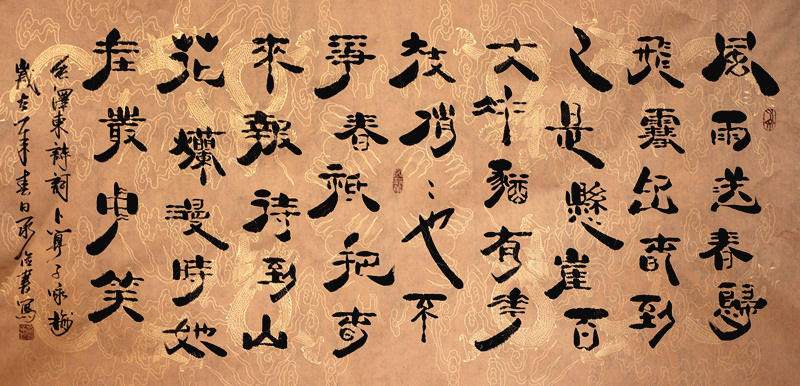 風雨送春歸
飛雪迎春到
已是懸崖百
丈冰猶有花
枝俏〻也不
爭春祇把春
來報待到山
花爛漫時她
在叢中笑
毛澤東詩詞卜算子咏梅
歲在年春日書寫